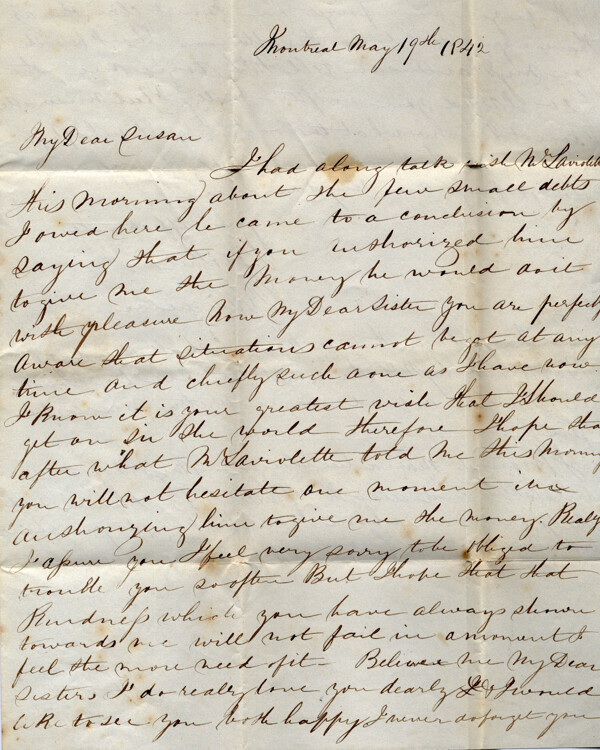 Montreal May 19th 1842
My Dear Susan
I had along talk with Mr Laviolette
this morning about the few small debts
I owed here he came to a conclusion by
saying that if you authorized him
to give me the Money he would do it
with pleasure now My Dear Sister you are perfectly
aware that situations cannot be got at any
time and chiefly such a one as I have now
I Know it is your greatest wish that I should
get on in the world therefore I hope that
after what Mr Laviolette told me this Morning
you will not hesitate one moment in
authorizing him to give me the money. Really
I assure you I feel very sorry to be obliged to
trouble you so often But I hope that that
Kindness which you have always shown
towards me will not fail in a moment I
feel the more need of it - Believe me My Dear
Sisters I do really love you dearly & I would
like to see you both happy I never do forget you